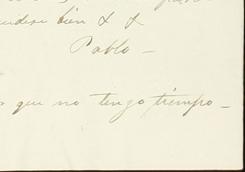 bien & &
Pablo —
que no tengo tiempo —